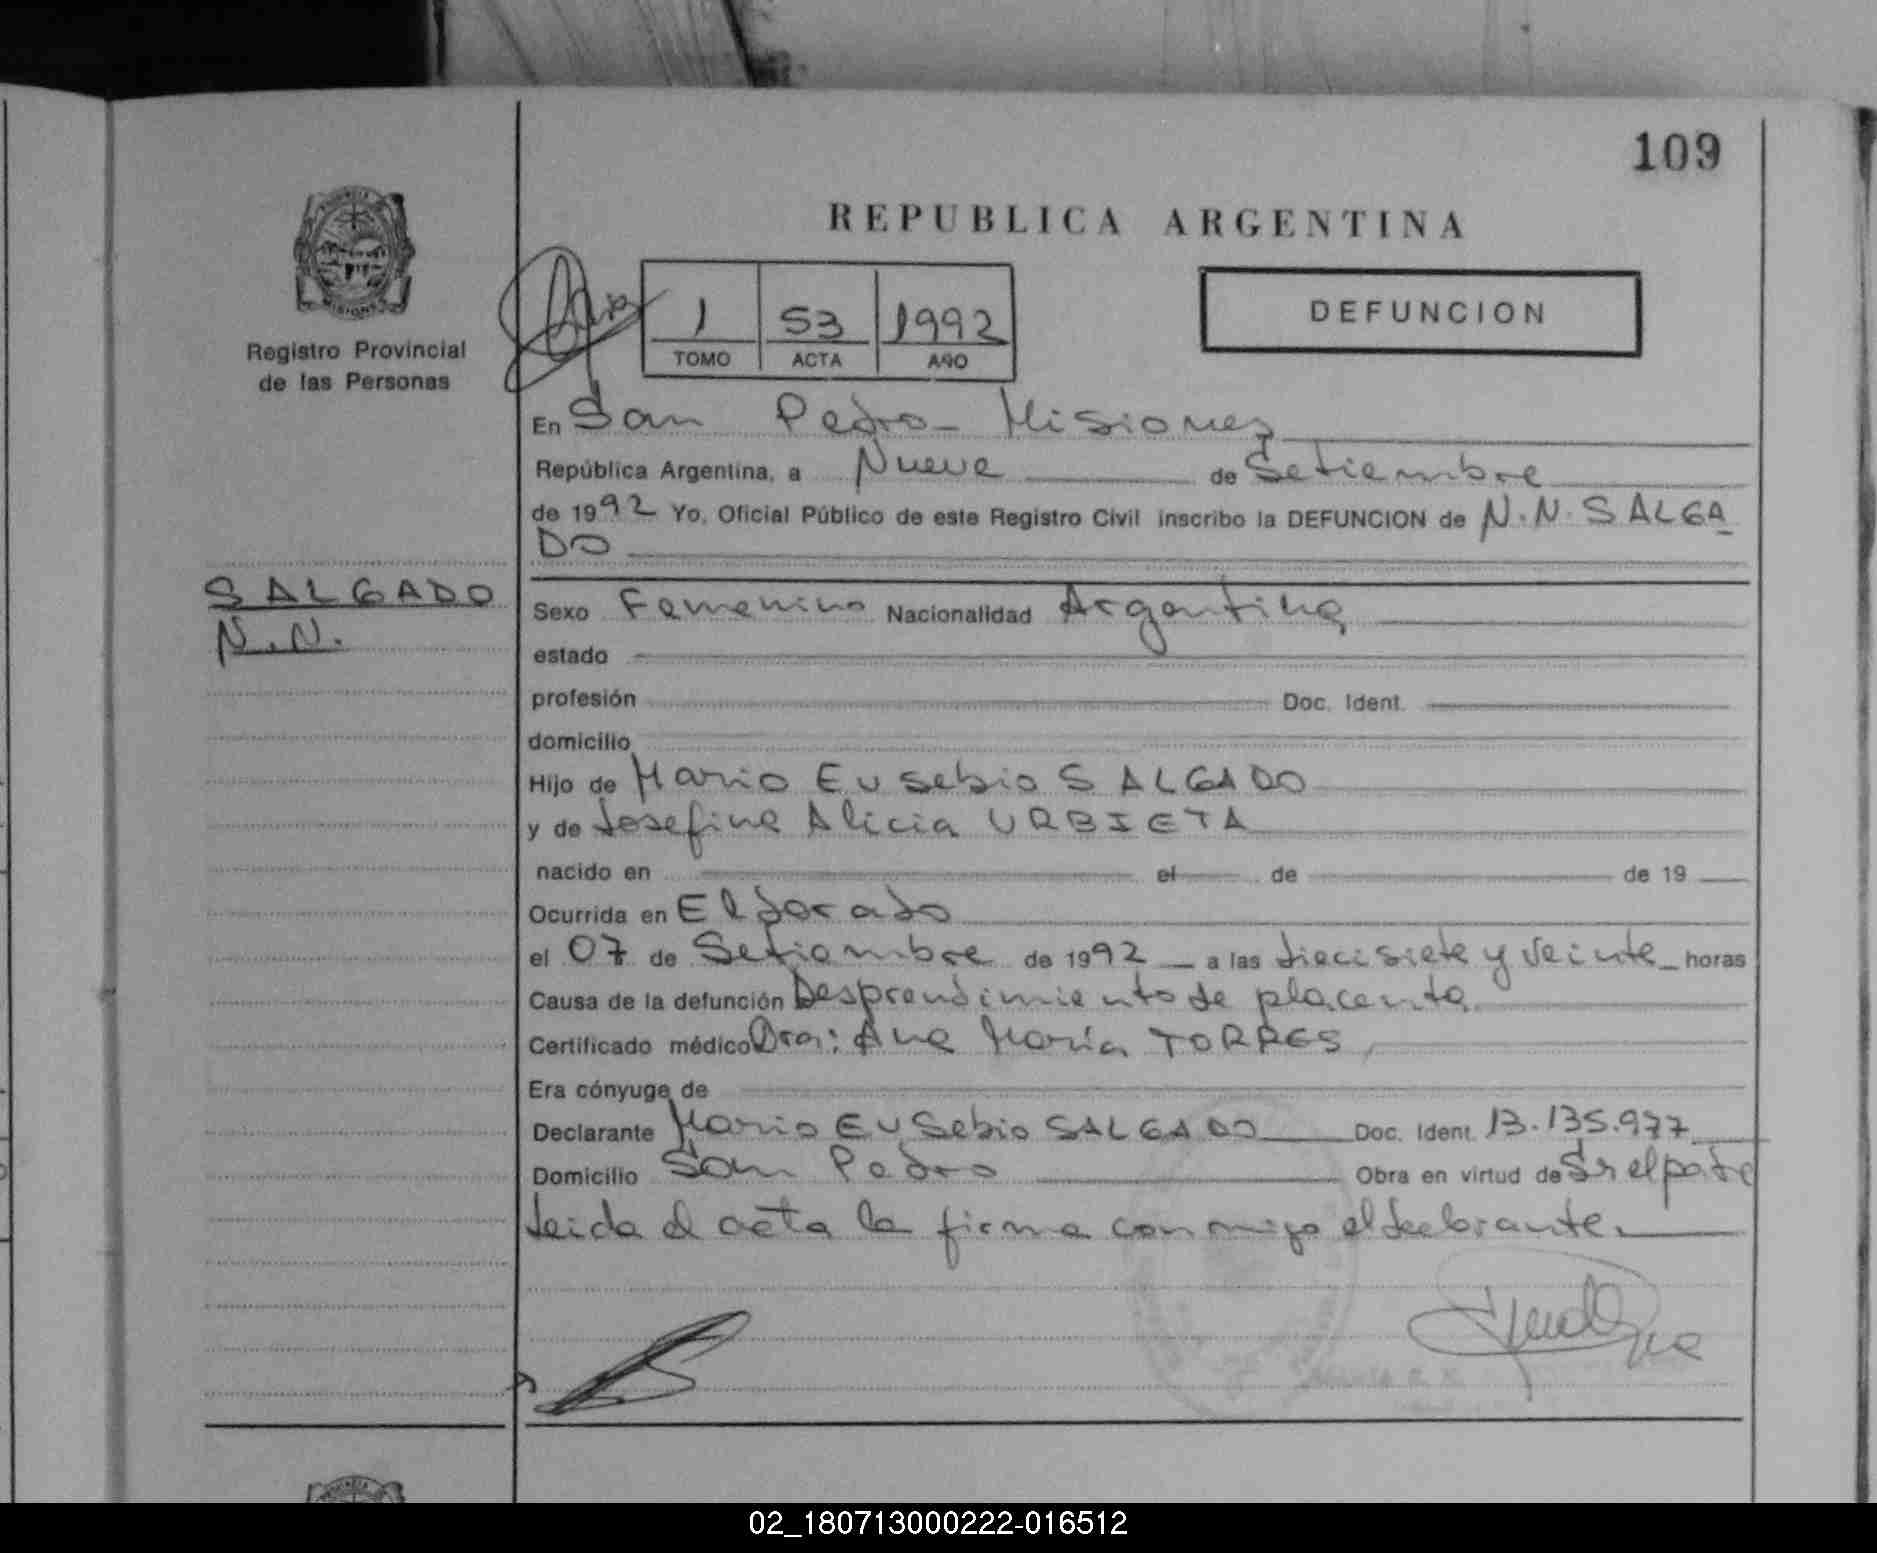 109
REPUBLICA ARGENTINA
Registro Provincial
de las Personas
1 53 1992
TOMO ACTA AÑO
DEFUNCION
En San Pedro - Misiones
República Argentina, a Nueve de Setiembre
de 1992 Yo, Oficial Público de este Registro Civil inscribo la DEFUNCION de N.N. SALGA
DO
SALGADO
N.N.
Sexo Femenino Nacionalidad Argentina
estado
profesión Doc. Ident.
domicilio
Hijo de Mario Eusebio SALGADO
y de Josefina Alicia URBIETA
nacido en el de de 19
Ocurrida en Eldorado
el 07 de Setiembre de 1992 a las diecisiete y veinte horas
Causa de la defunción Desprendimiento de placenta
Certificado médico Dra: Ana María TORRES
Era cónyuge de
Declarante Mario Eusebio SALGADO Doc. Ident. 13.135.977
Domicilio San Pedro Obra en virtud de Sr el padre
Leida el acta la firma conmigo el declarante.
02_180713000222-016512